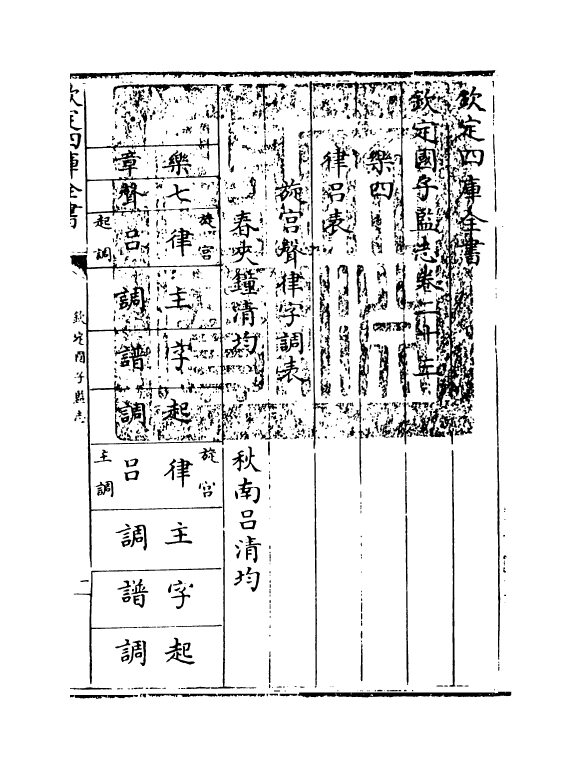 欽定四庫全書
欽定國子監志卷二十三
樂四
律呂表
旋宮聲律字調表
春夾鐘清均
秋南呂清均
樂章
七聲
旋宮
律呂
起調
主調
字譜
起調
旋宮
律呂
主調
主調
字譜
起調
欽定四庫全書
欽定國子監志